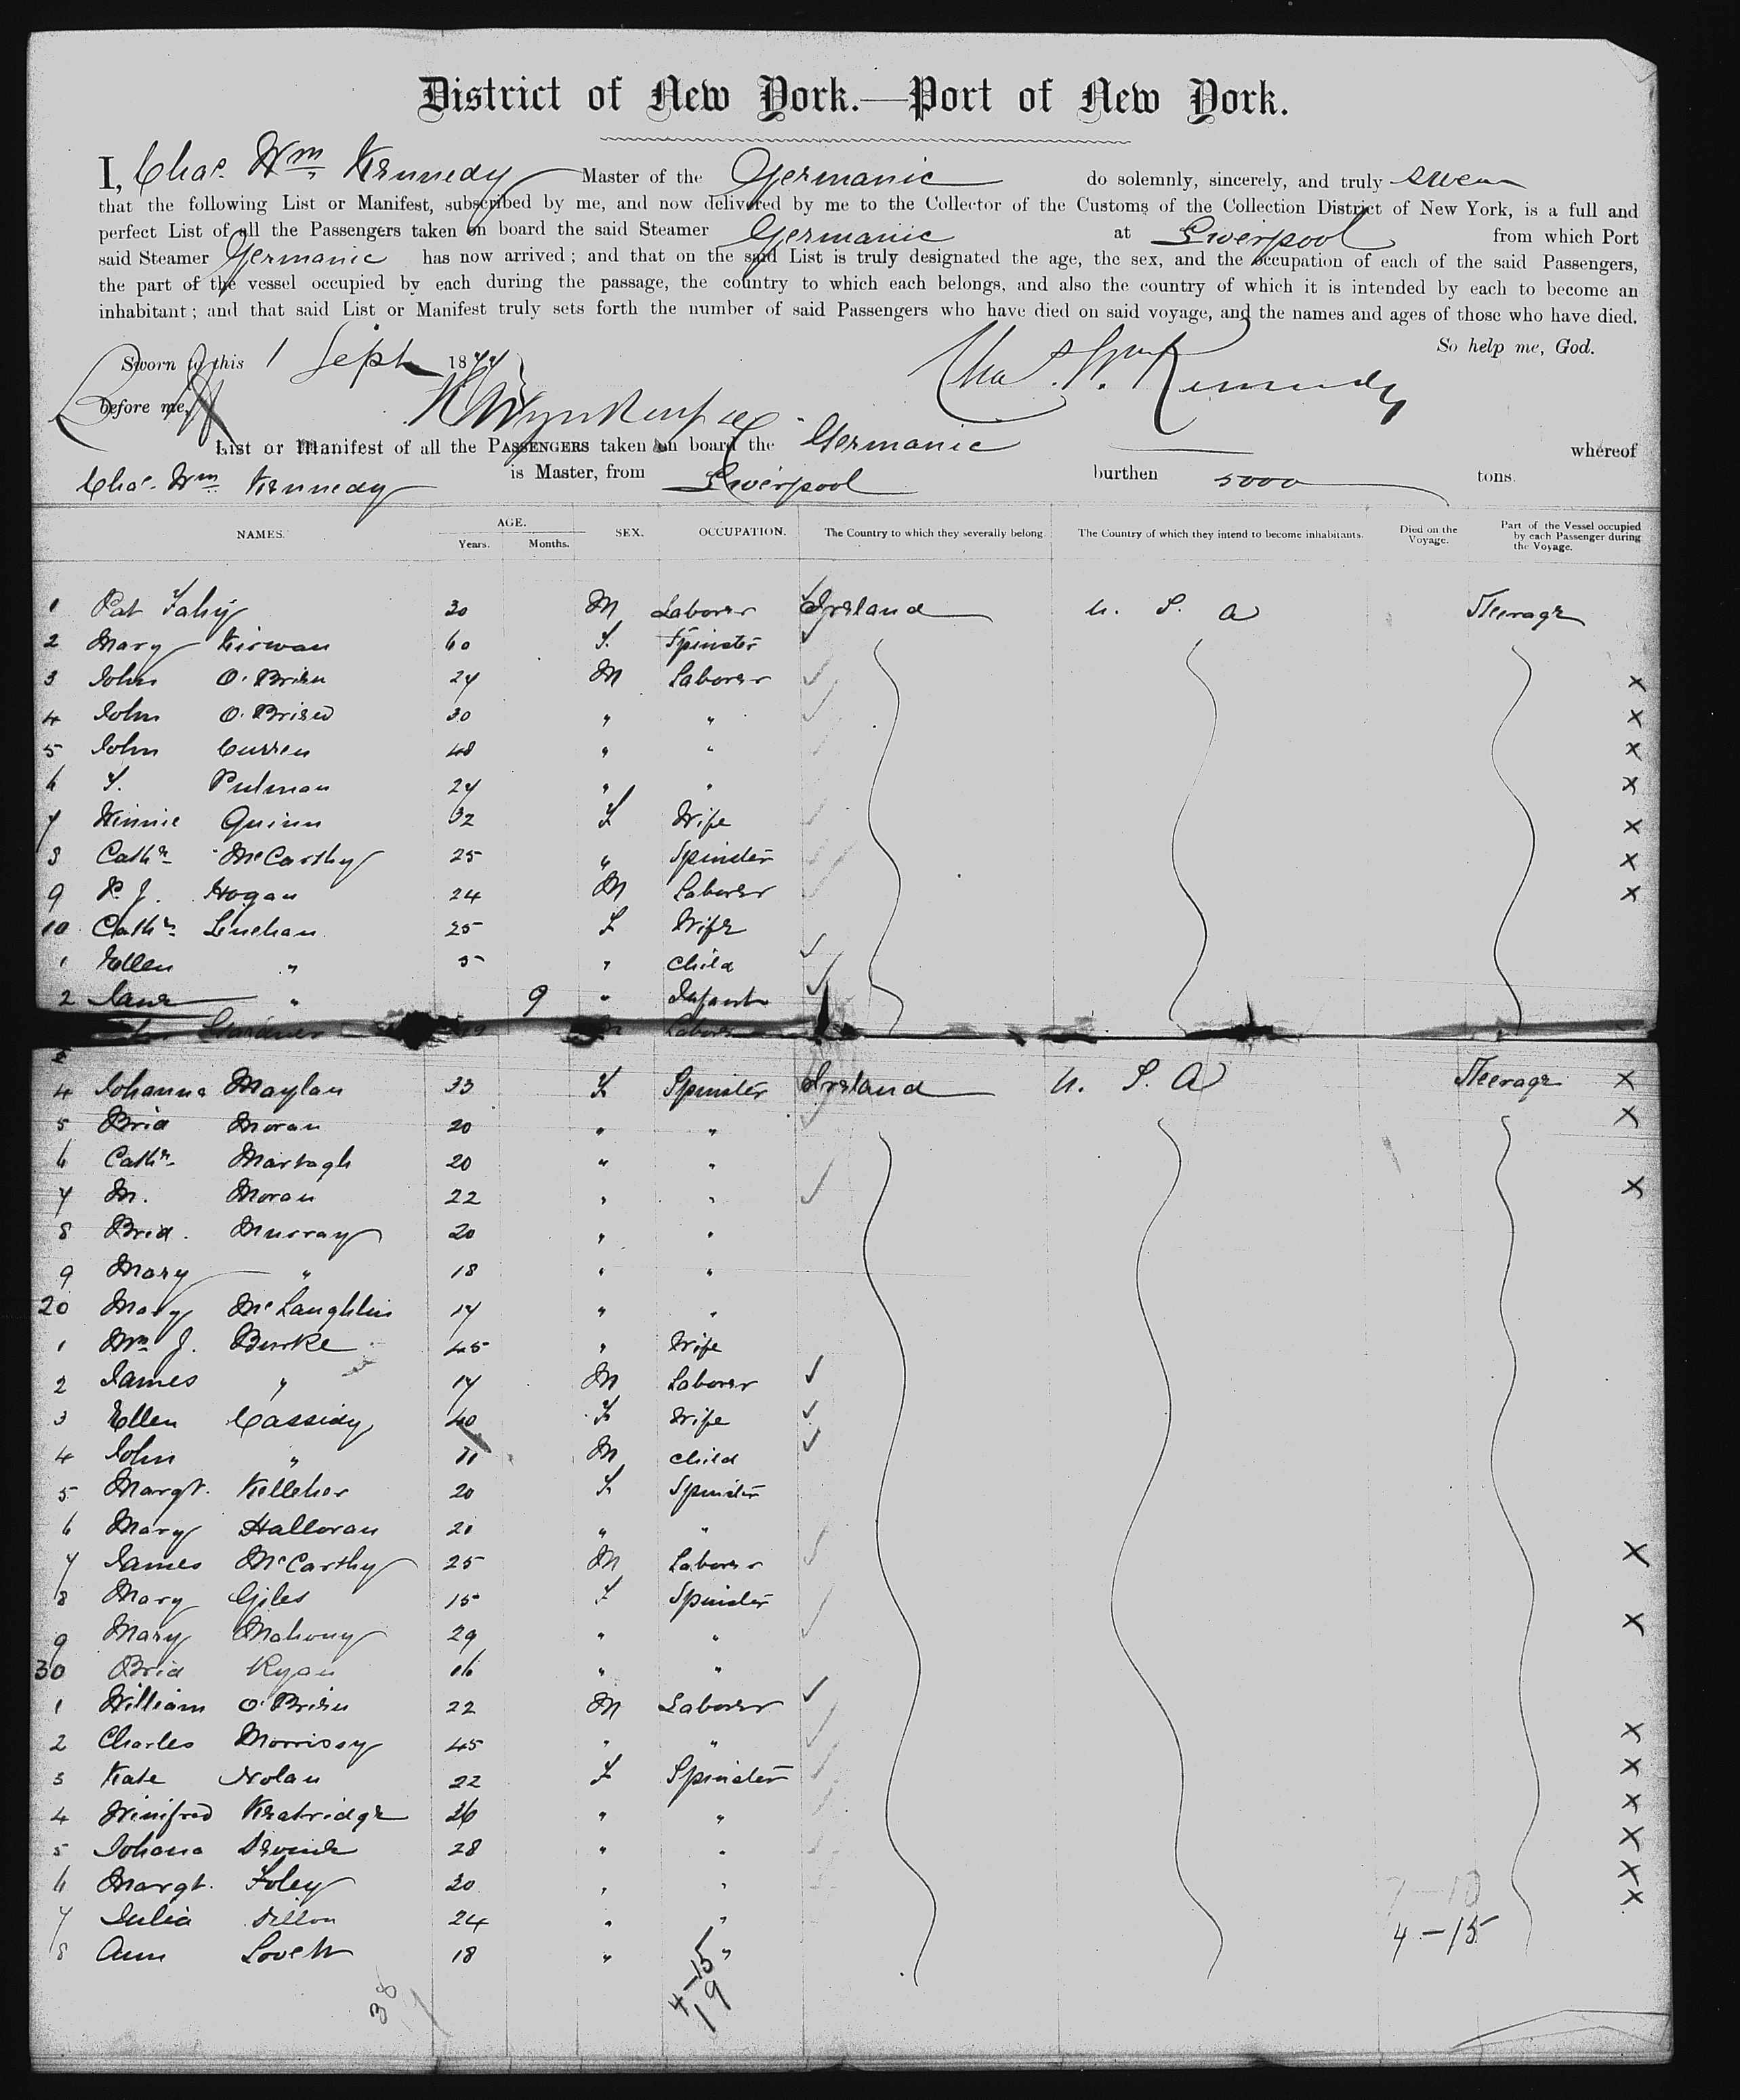 District of New York.—Port of New York.
I, Chas. Wm Kennedy Master of the Germanic do solemnly, sincerely, and truly swear
that the following List or Manifest, subscribed by me, and now delivered by me to the Collector of the Customs of the Collection District of New York, is a full and
perfect List of all the Passengers taken on board the said Steamer Germanic at Liverpool from which Port
said Steamer Germanic has now arrived; and that on the said List is truly designated the age, the sex, and the occupation of each of the said Passengers,
the part of the vessel occupied by each during the passage, the country to which each belongs, and also the country of which it is intended by each to become an
inhabitant; and that said List or Manifest truly sets forth the number of said Passengers who have died on said voyage, and the names and ages of those who have died.
So help me, God.
Sworn to this 1 Sept 1877
Chas. Wm Kennedy
before me,
List or Manifest of all the PASSENGERS taken on board the Germanic whereof
Chas. Wm Kennedy is Master, from Liverpool burthen 5000 tons.
NAMES. AGE. SEX. OCCUPATION. The Country to which they severally belong. The Country of which they intend to become inhabitants. Died on the Voyage. Part of the Vessel occupied by each Passenger during the Voyage.
Years. Months.
1 Pat Fahy 30 M Laborer Ireland U. S. A Steerage
2 Mary Kirwan 60 F. Spinster
3 John O'Brien 27 M Laborer X
4 John O'Brien 30 " " X
5 John Curren 48 " " X
6 T. Pulman 27 " " X
7 Winnie Quinn 32 F Wife X
8 Cathn McCarthy 25 " Spinster X
9 P. J. Hogan 24 M Laborer X
10 Cathn Linehan 25 F Wife
1 Ellen " 5 " Child
2 Jane " 9 " Infant
Gardner Laborer
4 Johanna Maylan 33 F Spinster Ireland U. S. A Steerage X
5 Brid Moran 20 " " X
6 Cathn Martagh 20 " "
7 M. Moran 22 " " X
8 Brid. Murray 20 " "
9 Mary " 18 " "
20 Mary McLaughlin 17 " "
1 Wm J. Burke 45 " Wife
2 James " 17 M Laborer
3 Ellen Cassidy 40 F Wife
4 John " 11 M child
5 Margt. Kelleher 20 F Spinster
6 Mary Halloran 21 " "
7 James McCarthy 25 M Laborer X
8 Mary Giles 15 F Spinster
9 Mary Mahony 29 " " X
30 Brid Ryan 16 " "
1 William O'Brien 22 M Laborer
2 Charles Morrissy 45 " " X
3 Kate Nolan 22 F Spinster X
4 Winifred 26 " " X
5 Johana 28 " " X
6 Margt. Foley 20 " " X
7 Julia Dillon 24 " " X
8 Ann Lovett 18 " "
7—10
4—15
4—15
19
38